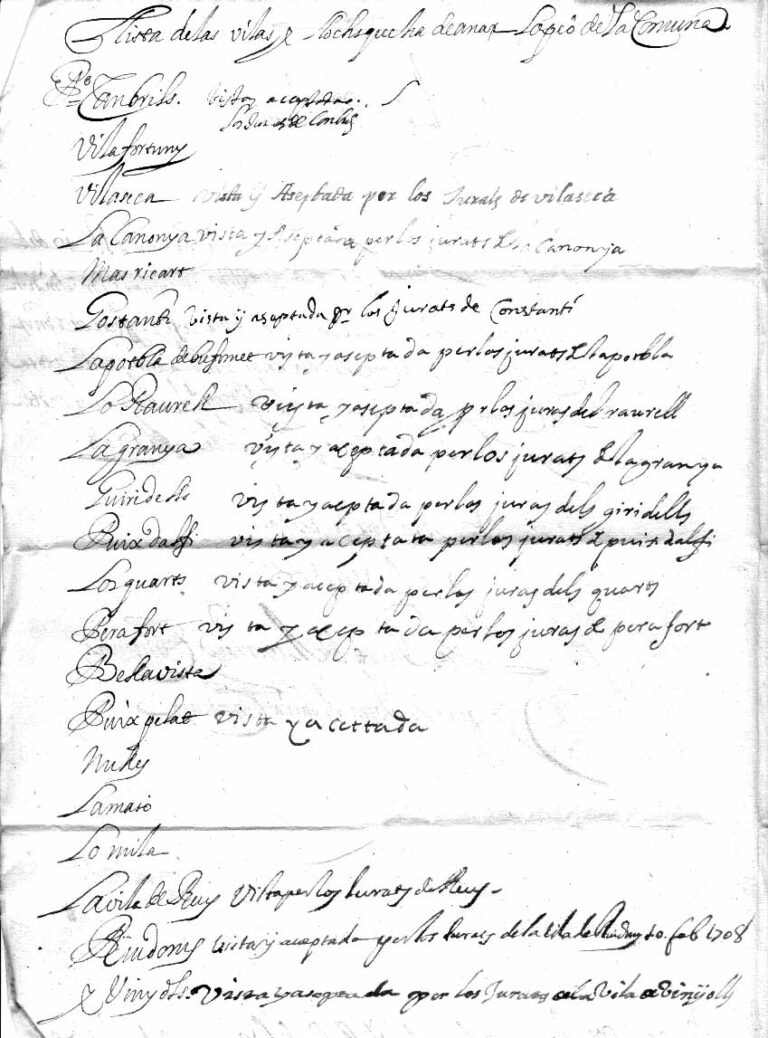 Llista de las vilas y llochs que ha de anar lo peó de la Comuna
Cambrils. vista y aceptada
los Jurats de Cambrils
Vilafortuny
Vilaseca vista y Aseptada per los Jurats de vilaseca
La Canonya vista y Aseptada per los jurats de la Canonja
Mas ricart
Costanti vista y aseptada pr los Jurats de Constantí
La pobla de vista y aseptada per los jurats de la pobla
Lo Raurell vista y aseptada pr los juras del raurell
La granya vista y aceptada per los jurats de la granya
Guiridells vista y aceptada per los juras dels giridells
Puixdalfi vista y aceptata per los jurats de puixdalfi
Los quarts vista y aceptada per los juras dels quarts
Perafort vista y aceptada per los juras de perafort
Bellavista
Puixpelat vista y acettada
Nulles
La masó
Lo mila
La vila de Reus Vista per los Jurats de Reus
Riudoms vista y aceptada per los Jurats de la vila de Riudoms 10 feb 1708
y Vinyols. vista y aseptada per los Jurats de la Vila de Vinyolls